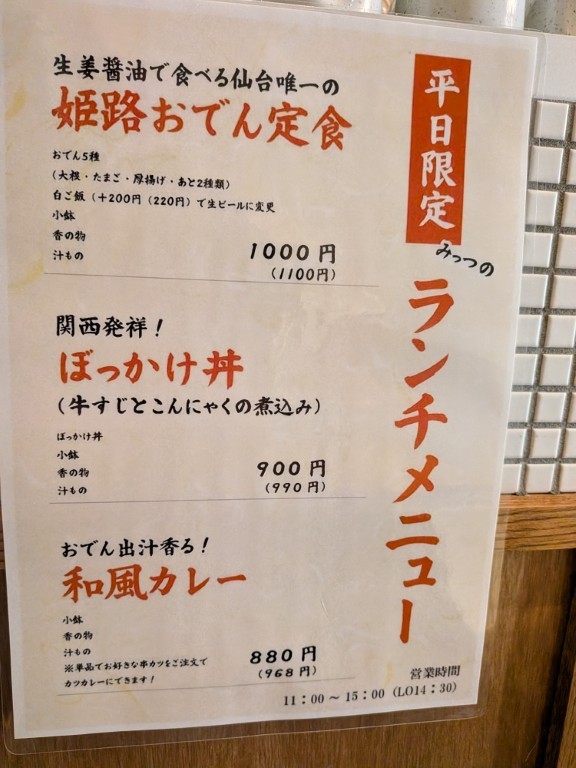 平日限定
みっつの
ランチメニュー
生姜醤油で食べる仙台唯一の
姫路おでん定食
おでん5種
(大根・たまご・厚揚げ・あと2種類)
白ご飯(+200円(220円)で生ビールに変更
小鉢
香の物
汁もの
1000円
(1100円)
関西発祥!
ぼっかけ丼
(牛すじとこんにゃくの煮込み)
ぼっかけ丼
小鉢
香の物
汁もの
900円
(990円)
おでん出汁香る!
和風カレー
小鉢
香の物
汁もの
※単品でお好きな串カツをご注文で
カツカレーにできます!
880円
(968円)
営業時間
11:00~15:00(LO14:30)